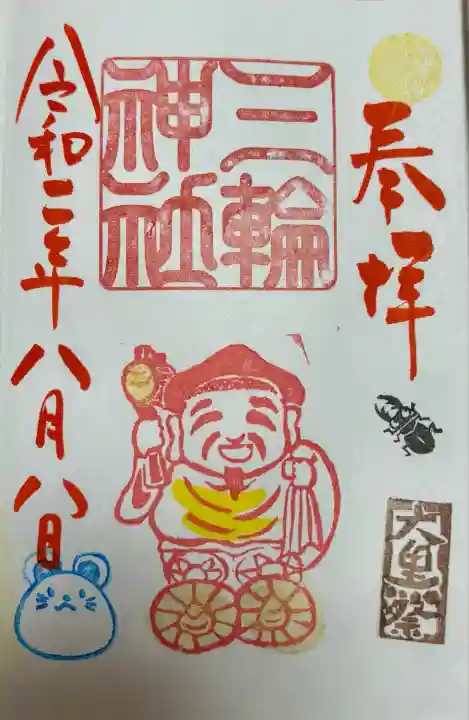 奉拝
三輪
神社
令和二年八月八日
大黒祭